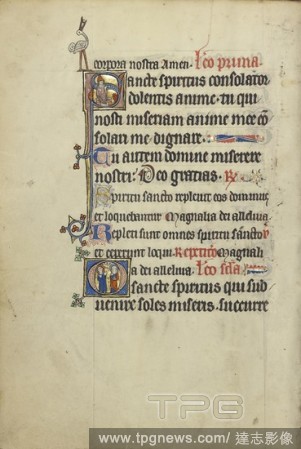 corpora nostra Amen. l̃co prima
Sancte spiritus consolator
dolentis anime. tu qui
nosti miseriam anime mee cō
solari me dignare.
Tu autem domine miserere
nostri. Deo gratias. R̃
Spiritu sancto repleuit eos dominus
et loquebantur Magnalia dei alleluia.
Repleti sunt omnes spiritu sancto
et ceperunt loqui. Repeticō Magnali
a dei alleluia. l̃co sc̃da
O sancte spiritus qui sub
uenire soles miseris. succurre
TPG
www.tpgnews.com/ 達志影像